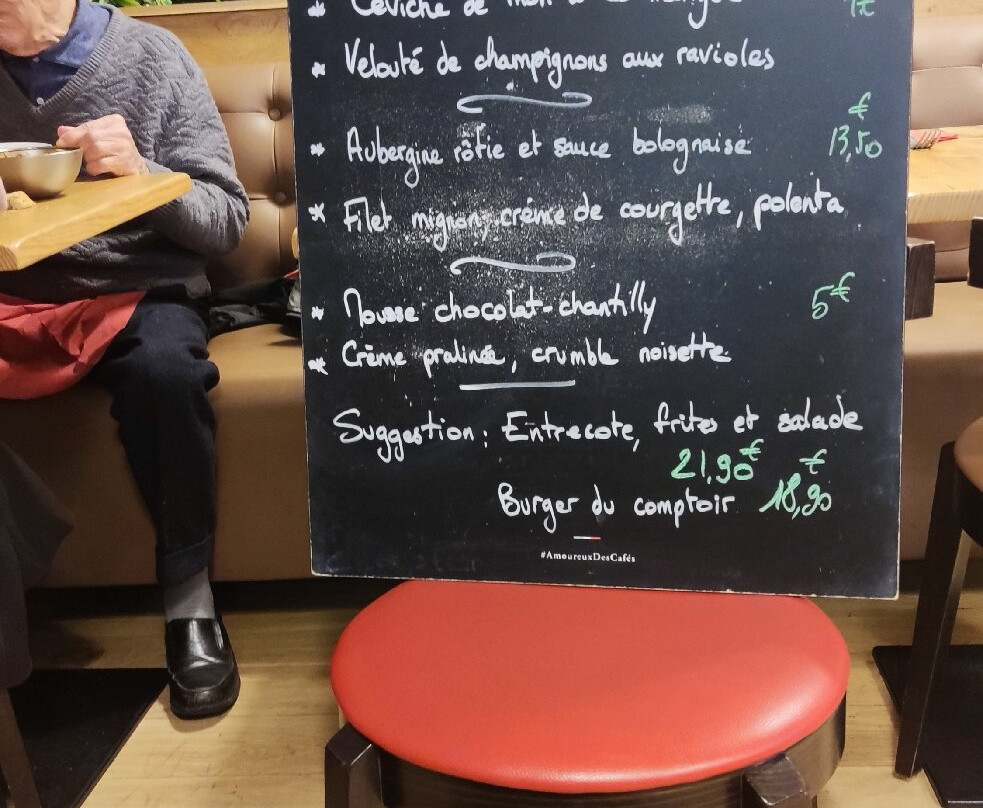 * Ceviche de
* Velouté de champignons aux ravioles
€
* Aubergine rôtie et sauce bolognaise 13,50
* Filet mignon, crème de courgette, polenta
* Mousse chocolat-chantilly 5€
* Crème pralinée, crumble noisette
Suggestion : Entrecote, frites et salade
21,90€
Burger du comptoir 18,90€
#AmoureuxDesCafés